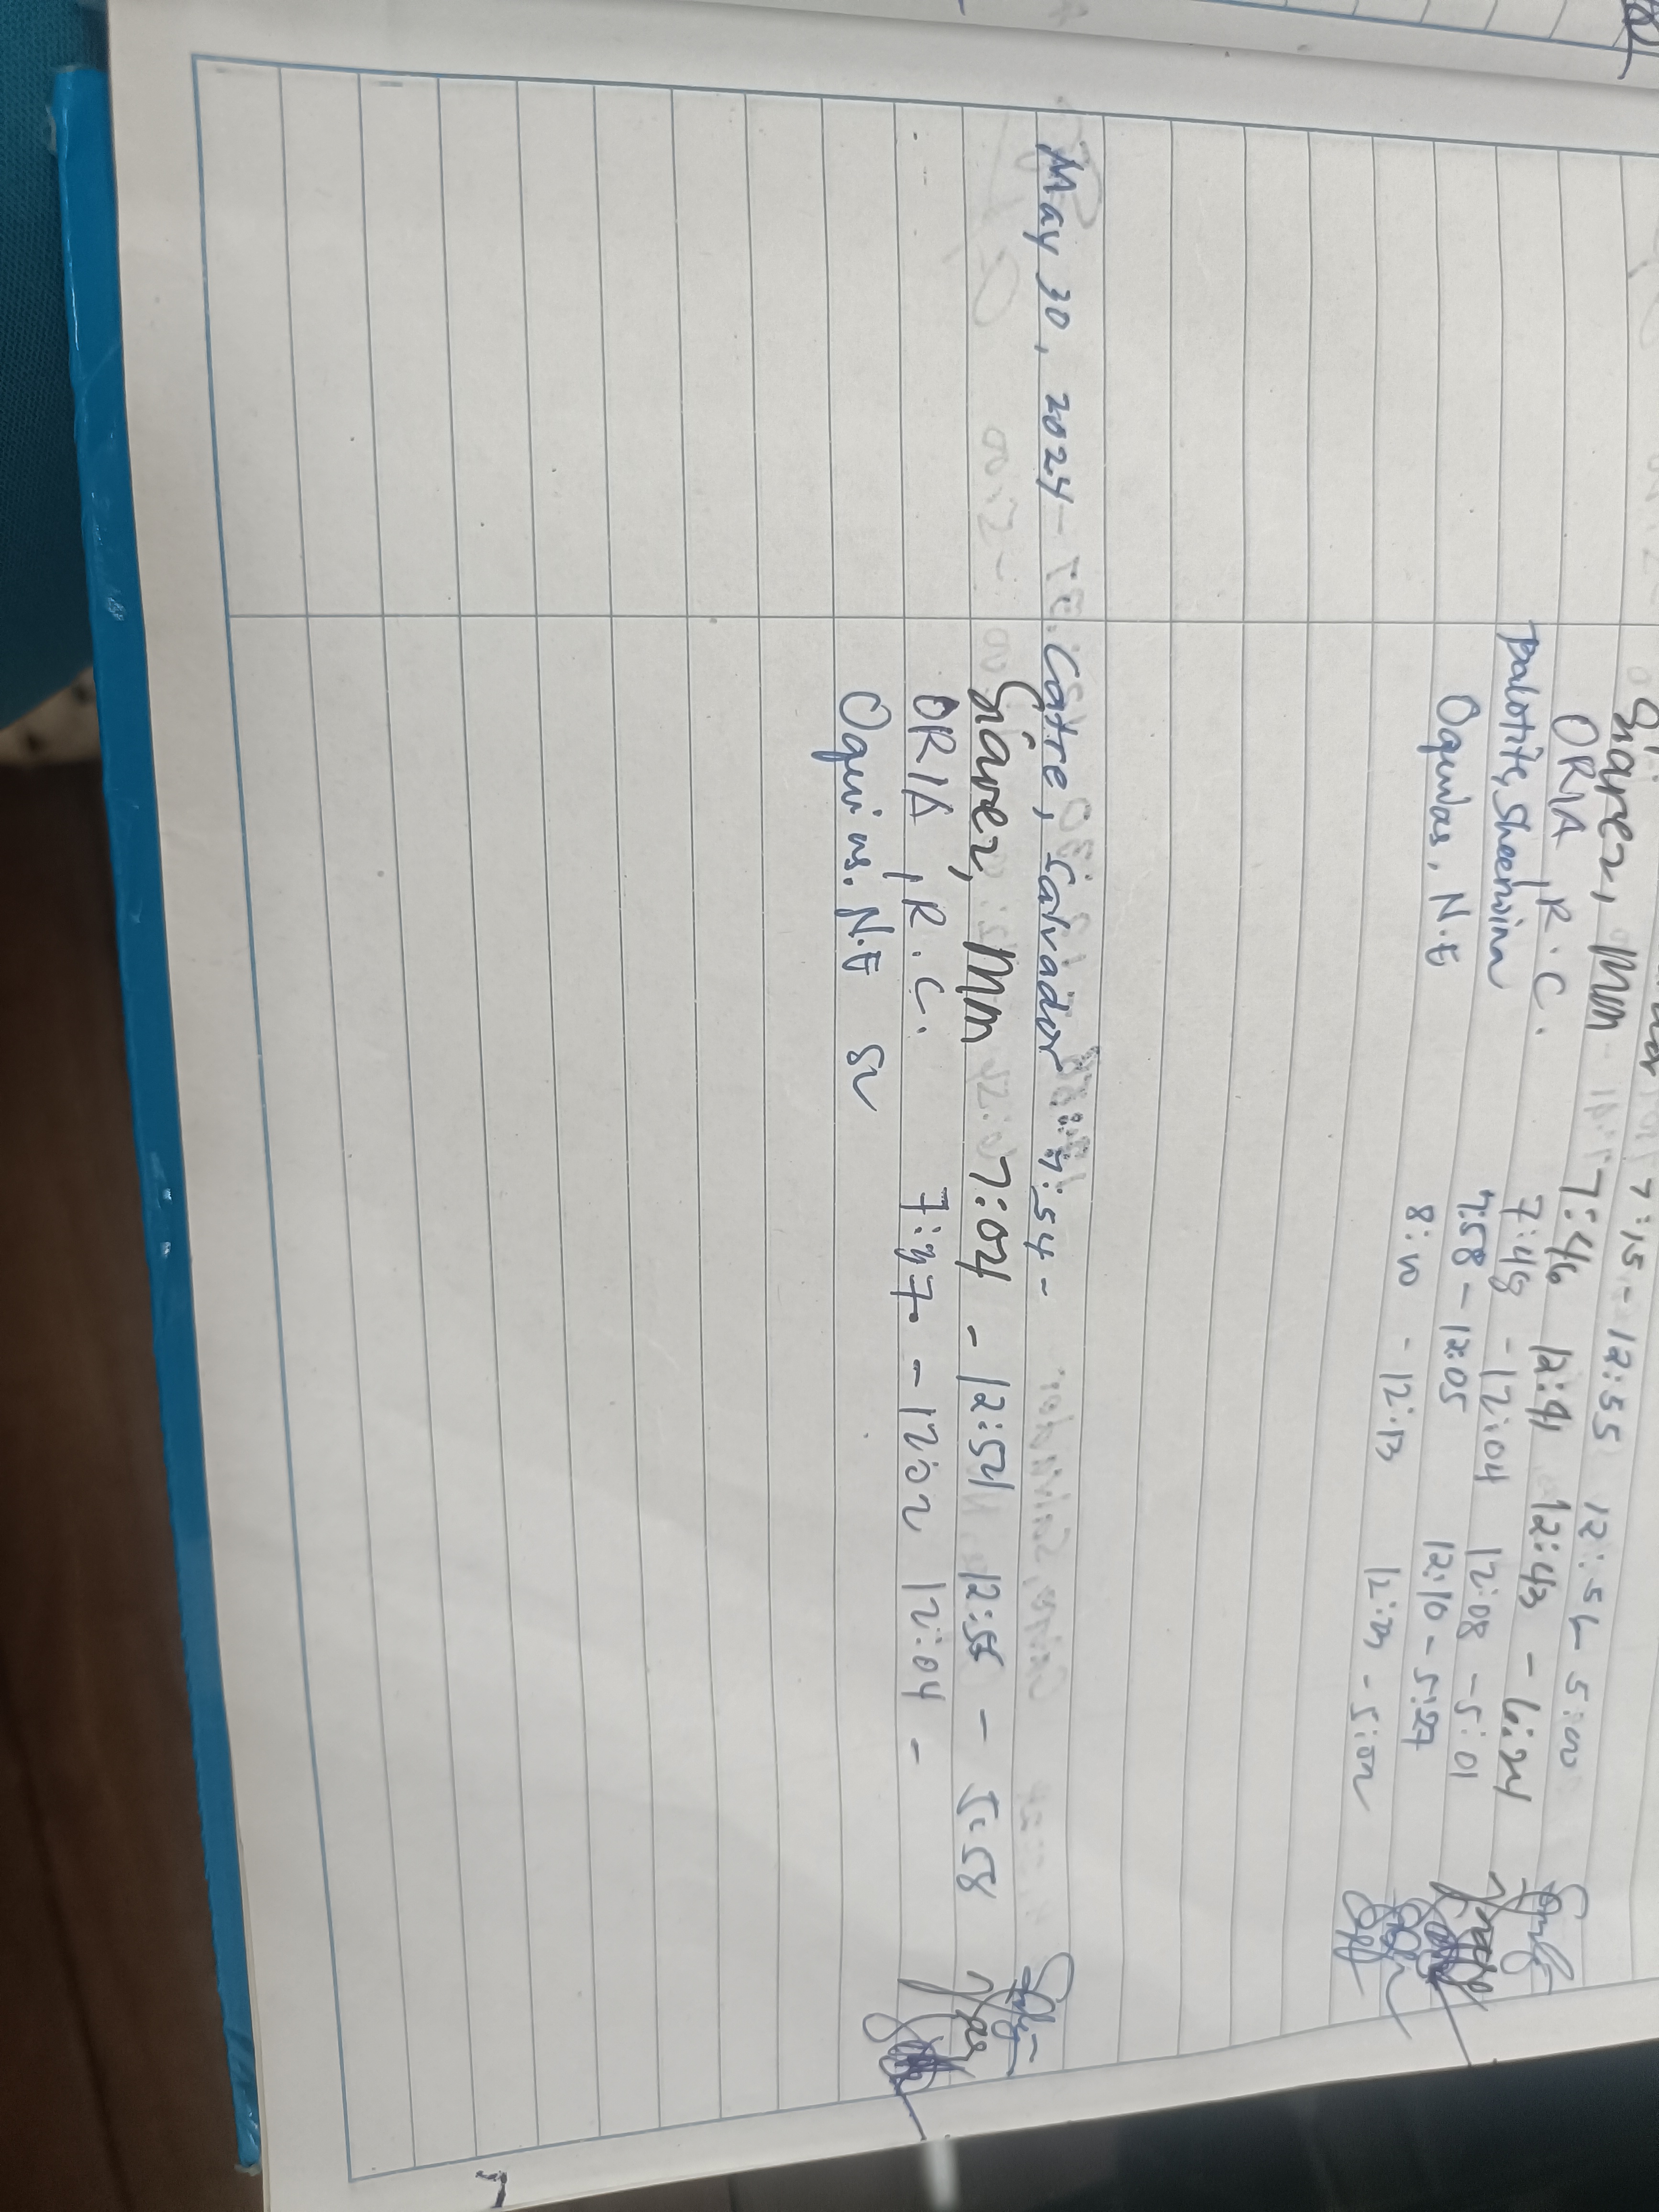 7:15 - 12:55 12:56 - 5:00
Giarez, MM 7:46 12:41 12:43 - 6:24
ORIA, R.C. 7:48 - 12:04 12:08 - 5:01
palotite, Sheerwina 7:58 - 12:05 12:10 - 5:27
Oquias, N.E 8:10 - 12:13 5:02
May 30, 2024 - Catre, Salvador 7:54 -
Giarez, MM 7:04 - 12:54 12:55 - 5:58
ORIA, R.C. 7:47 - 12:02 12:04 -
Oquias. N.E